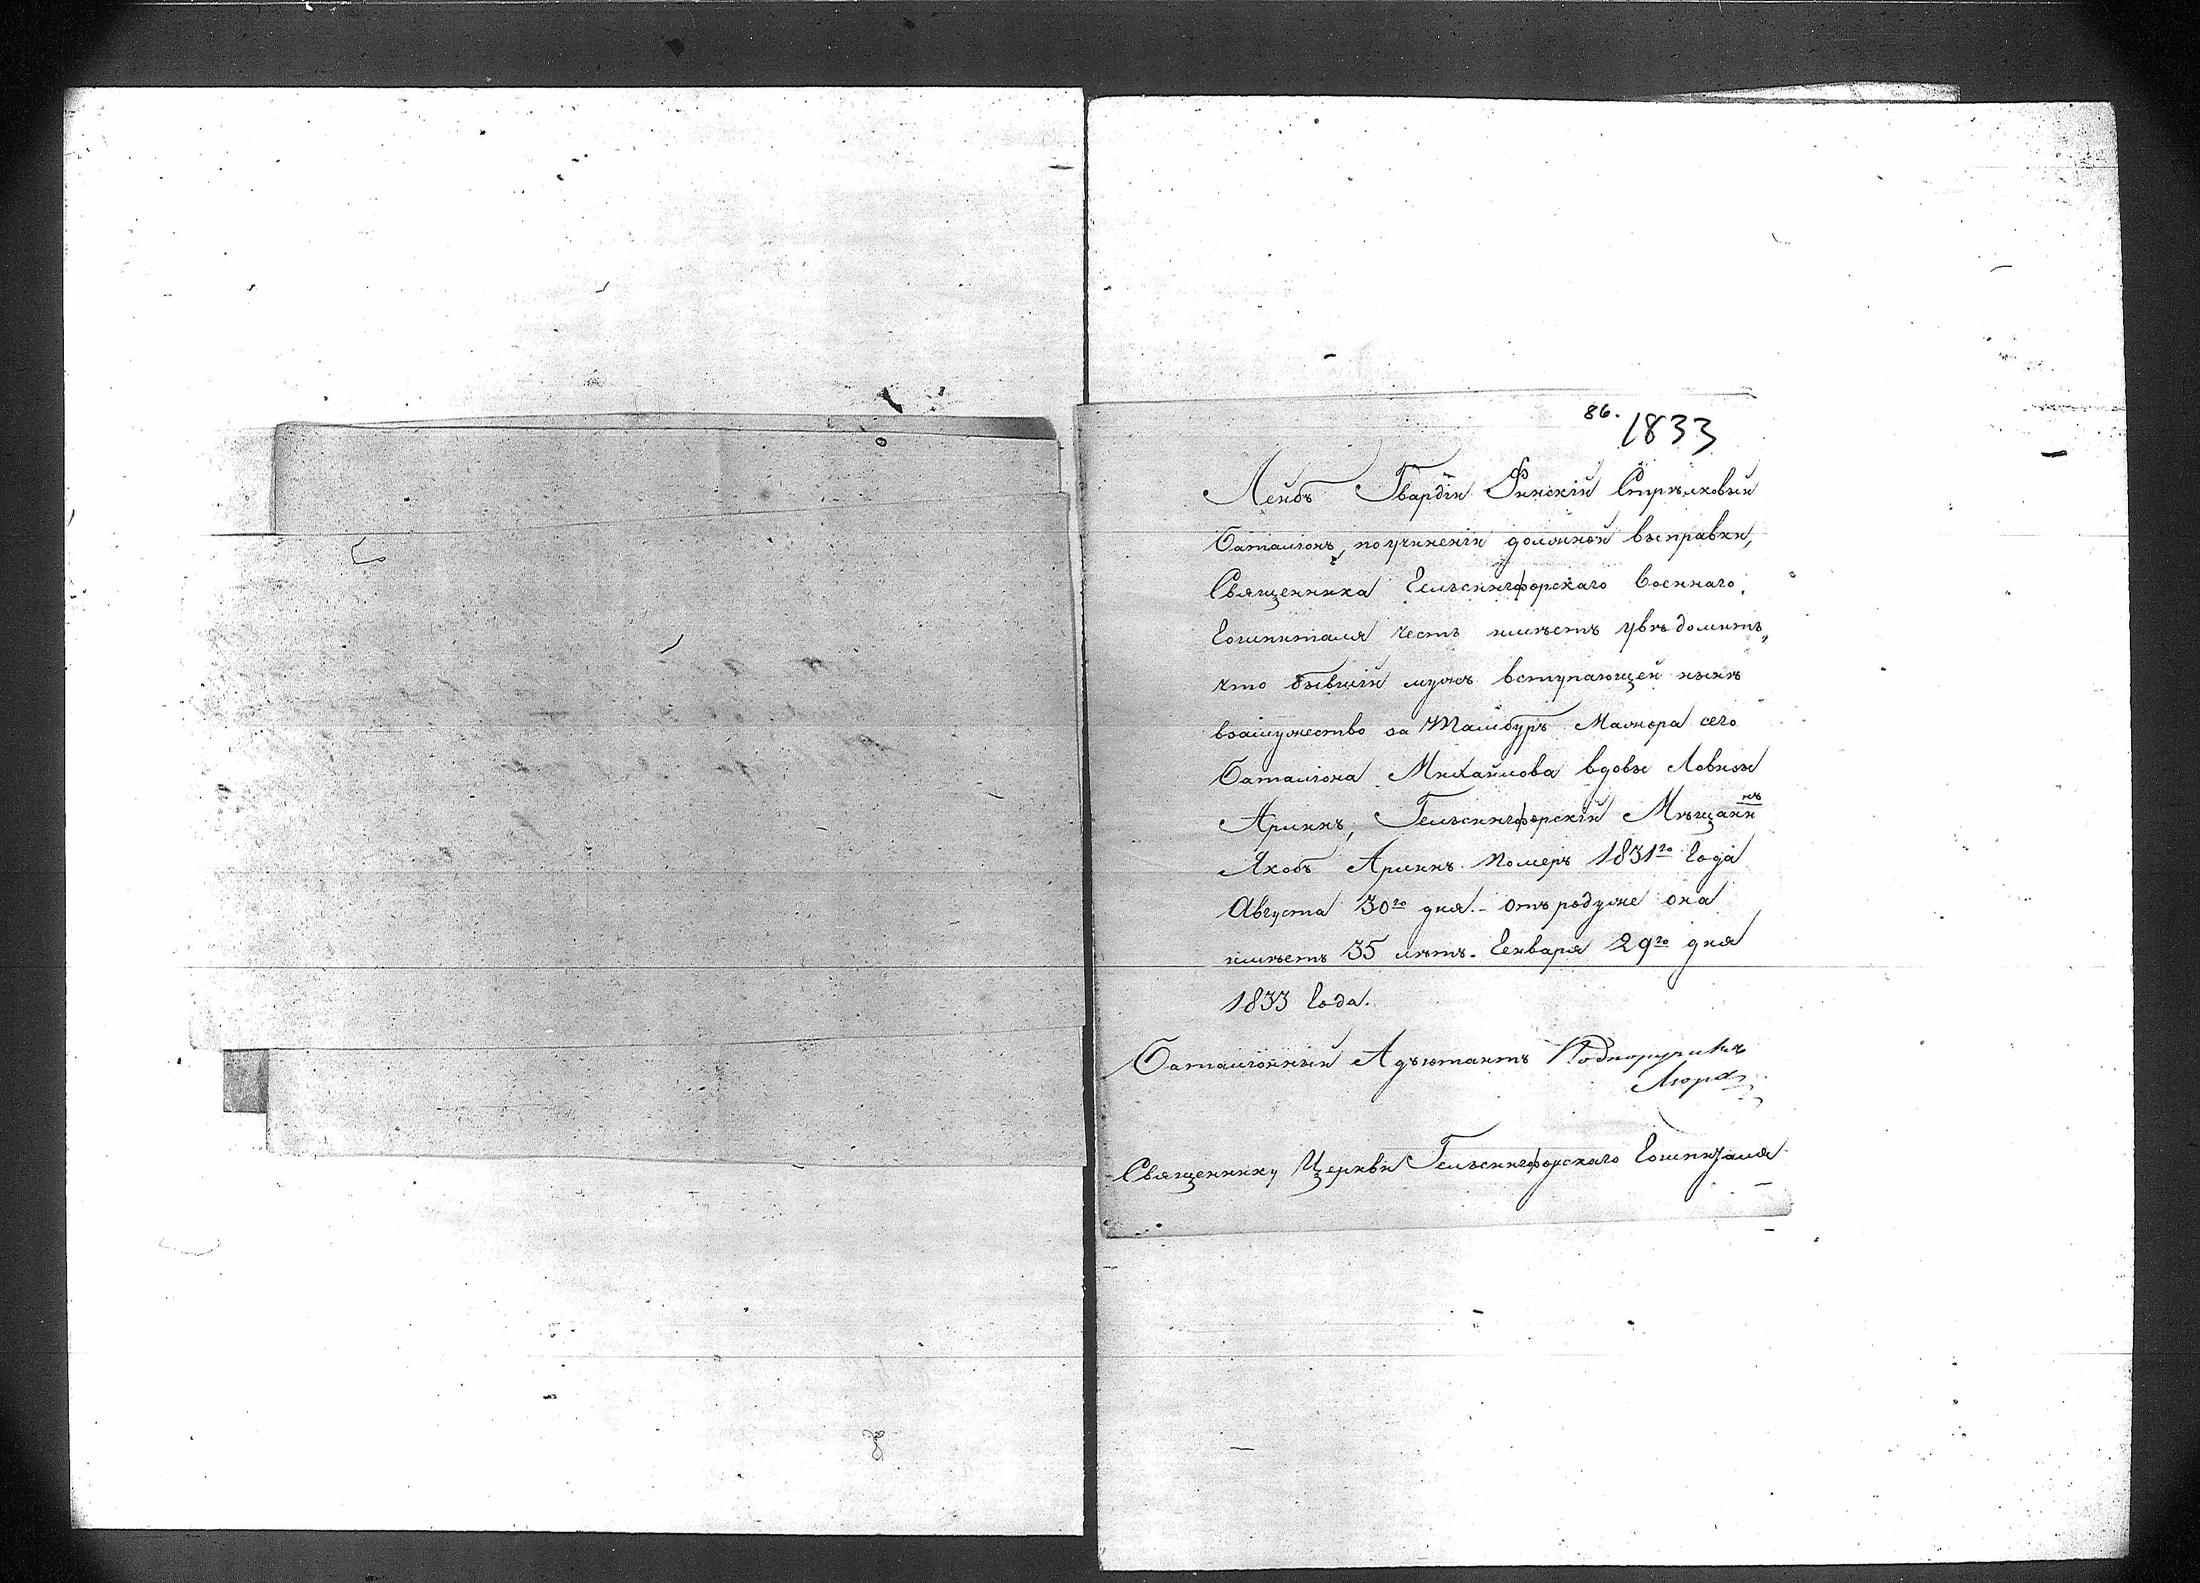 86.
1833
Лейбъ Гвардіи Финскій Стрѣлковый
Баталіонъ, поучиненіи должной выправки,
Священника Гельсингфорскаго военнаго
Гошпиталя честь имѣетъ увѣдомить,,
что бывшій мужъ вступающей нынѣ
взамужество за Тамбуръ Маиора сего
Баталіона Михайлова вдовы Ловизы
Арминъ, Гельсингфорскій Мѣщанинъ
Якобъ Арминъ померъ 1831го Года
Августа 30го дня. - отъ родуже она
имѣетъ 35 лѣтъ. Генваря 29го дня
1833 Года.
Баталіонный Адъютантъ Подпоручикъ
Священнику Церкви Гельсингфорскаго Гошпиталя